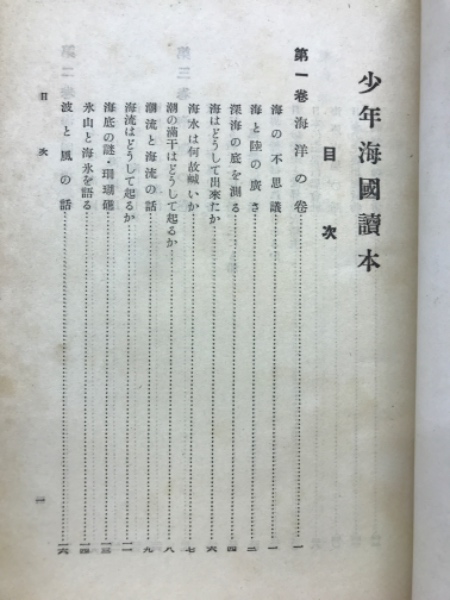 少年海國讀本
目次
第一卷 海洋の卷……一
海の不思議……一
海と陸の廣さ……三
深海の底を測る……四
海はどうして出來たか……六
海水は何故鹹いか……七
潮の滿干はどうして起るか……八
潮流と海流の話……九
海流はどうして起るか……一一
海底の謎・珊瑚礁……一三
氷山と海氷を語る……一四
波と風の話……一六
目次
一